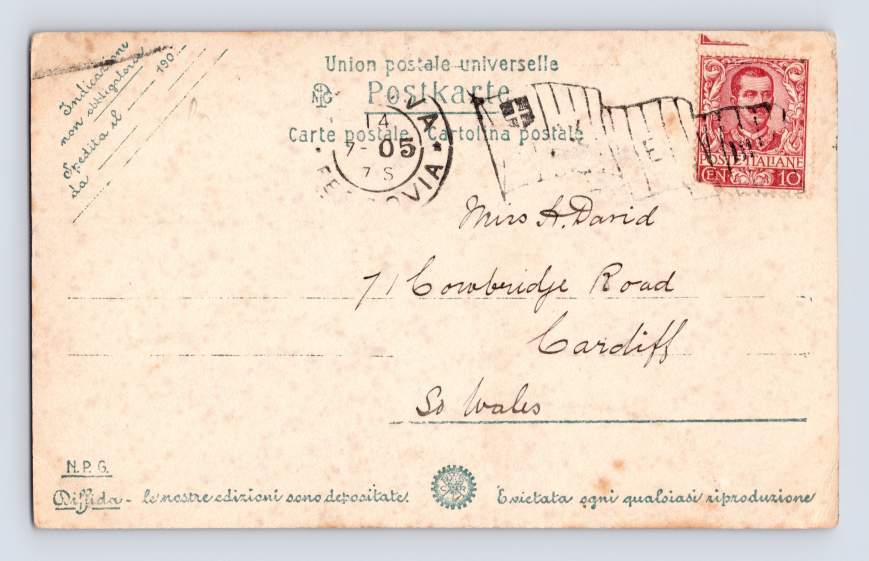 Indicazione
non obbligatoria
Spedita il 190...
da
Union postale universelle
Postkarte
Carte postale Cartolina postale
14
7-05
7 S
FERROVIA
POSTE ITALIANE
CEN 10
Miss A. David
71 Cowbridge Road
Cardiff
So Wales
N.P.G.
Diffida - le nostre edizioni sono depositate. E vietata ogni qualsiasi riproduzione